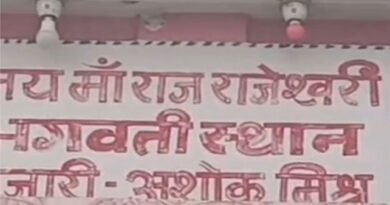 जय माँ राज राजेश्वरी
भगवती स्थान
पुजारी - अशोक मिश्र